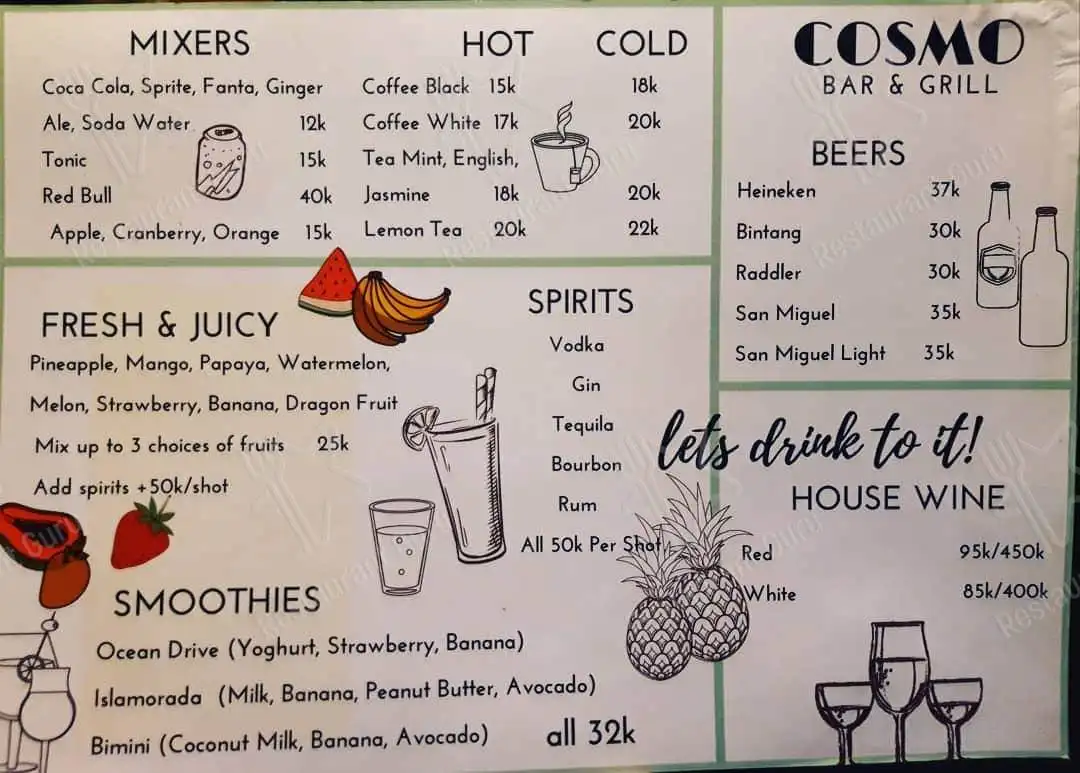 MIXERS
Coca Cola, Sprite, Fanta, Ginger
Ale, Soda Water 12k
Tonic 15k
Red Bull 40k
Apple, Cranberry, Orange 15k
HOT COLD
Coffee Black 15k 18k
Coffee White 17k 20k
Tea Mint, English,
Jasmine 18k 20k
Lemon Tea 20k 22k
COSMO
BAR & GRILL
BEERS
Heineken 37k
Bintang 30k
Raddler 30k
San Miguel 35k
San Miguel Light 35k
FRESH & JUICY
Pineapple, Mango, Papaya, Watermelon,
Melon, Strawberry, Banana, Dragon Fruit
Mix up to 3 choices of fruits 25k
Add spirits +50k/shot
SPIRITS
Vodka
Gin
Tequila
Bourbon
Rum
All 50k Per Shot
lets drink to it!
HOUSE WINE
Red 95k/450k
White 85k/400k
SMOOTHIES
Ocean Drive (Yoghurt, Strawberry, Banana)
Islamorada (Milk, Banana, Peanut Butter, Avocado)
Bimini (Coconut Milk, Banana, Avocado) all 32k